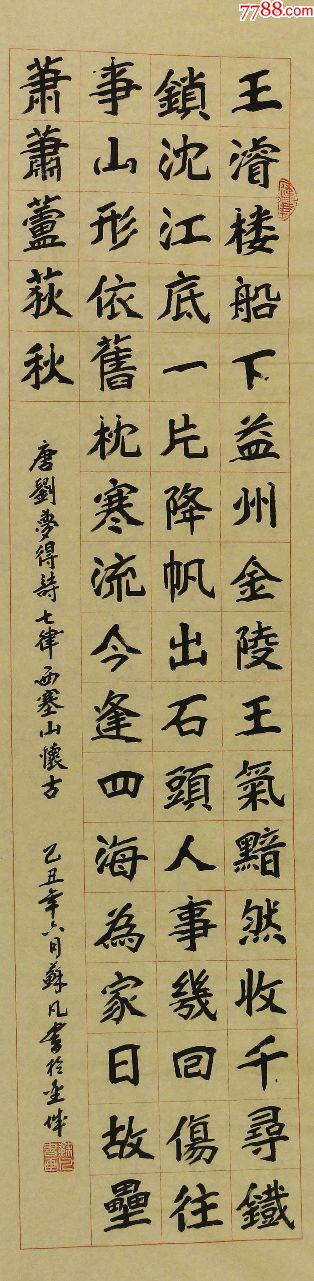 7788.com
王濬楼船下益州金陵王氣黯然收千尋鐵
鎖沈江底一片降帆出石頭人事幾回傷往
事山形依舊枕寒流今逢四海為家日故壘
蕭蕭蘆荻秋
唐劉夢得詩七律西塞山懷古
乙丑年六月蘇凡書於